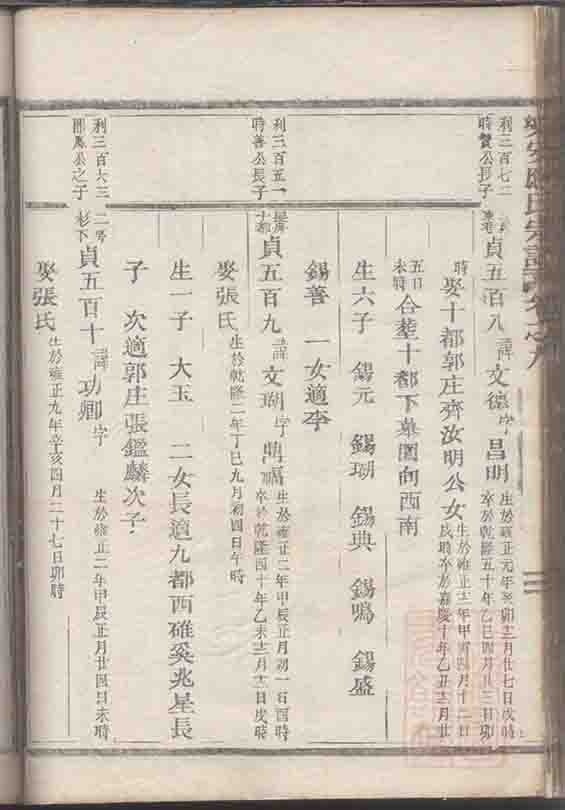 利三百七二
時賢公長子
貞五百八 諱文德字昌明
生於雍正元年癸卯十二月廿七日戌時
卒於乾隆五十年乙巳四月廿三日卯
時
娶十都郭庄齊汝明公女
生於雍正十二年甲寅四月十二日
戌時卒於嘉慶十年乙丑十二月廿
五日
未時
合塟十都下菓園向西南
生六子 錫元 錫瑚 錫典 錫鳴 錫盛
錫善 一女適李
利三百五一
時善公長子
貞五百九 諱文瑚字
生於雍正二年甲辰正月初一日酉時
卒於乾隆四十年乙未十二月十二日戌時
娶張氏 生於乾隆二年丁巳九月初四日午時
生一子 大玉 二女長適九都西碓奚兆星長
子 次適郭庄張鑑麟次子
利三百六三
即鳳公之子
二号
杉下
貞五百十 諱功卿字
生於雍正二年甲辰正月廿四日未時
娶張氏 生於雍正九年辛亥四月二十七日卯時